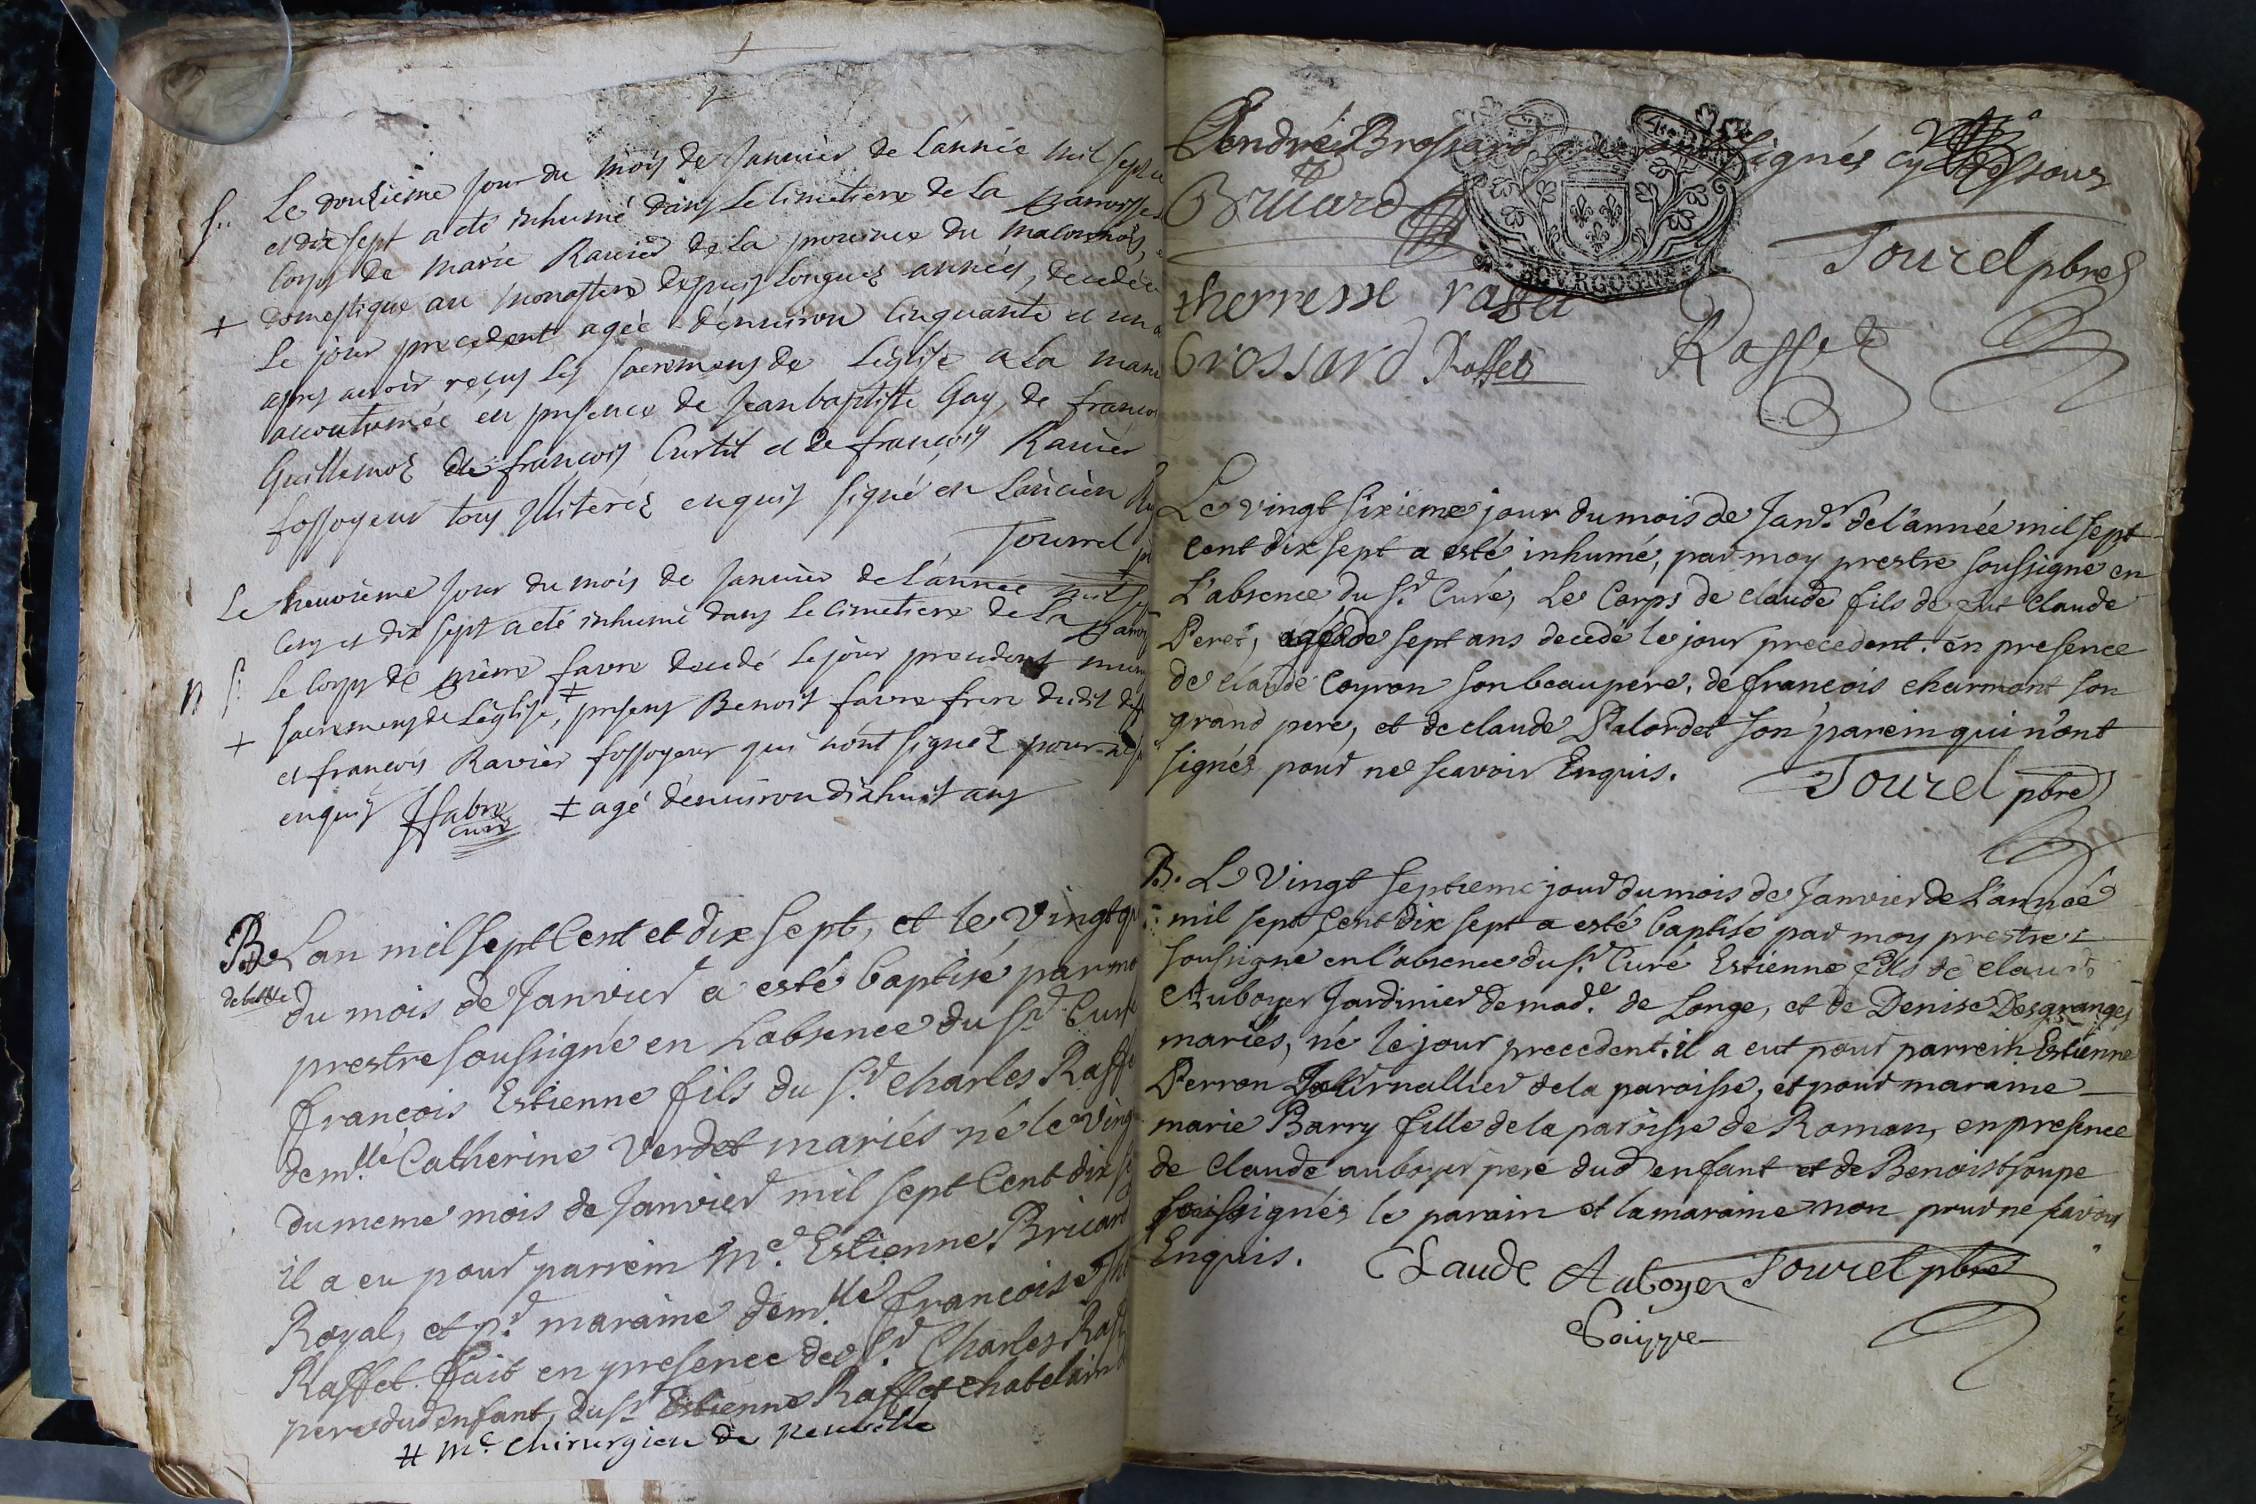 S.. Le douzieme jour du mois de Janvier de Lannée mil sept c
et dix sept a eté inhumé dans le Cimetiere de La parroisse
Corps de marie Ravier de La province du maconnois,
+ domestique au monastere depuis longues années, decedée
le jour precedent agée d'environ Cinquante et un a
apres avoir reçus les sacremens de Léglise a La mani
accoutumée en presence de Jean baptiste Gay, de francois
Guillemot de françois Curtil et de françois Ravier
fossoyeur tous illiterés enquis signé en
Tourrel
Le neuvième Jour du mois de Janvier de L'année mil
Cens et dix sept a eté inhumé dans le Cimetiere de La
S. le Corps de pierre favre decedé le jour precedent
+ sacremens de Léglise, ‡ presens Benoit favre frere dudit
et françois Ravier fossoyeur qui n'ont signez pour ne
enquis ffabre ‡ agé d'environ dixhuit ans
curé
B Lan mil sept Cent et dix sept, et le vingt
du mois de Janvier a esté baptisé par mo
prestre soussigné en Labsence du Sr. Curé
françois Estienne fils du Sr. Charles Raffe
demlle Catherine Verdet mariés né le ving
du meme mois de Janvier mil sept Cent dix
il a eu pour parrein Me. Estienne Bricard
Royal, et pr. maraine demlle françoise
Raffet fait en presence de Sr. Charles Raf
pere dud enfant, du Sr. Estienne Raffet chatelain
# Me. chirurgien de Neuville
André Brossard signés cy dessous
Bricard
Tourel pbre
therresse raffet
brossard Raffet Raffet
Le vingt sixieme jour du mois de Janvr. de l'année mil sept
cent dix sept a esté inhumé, par moy prestre soussigné en
L'absence du Sr. Curé, Le Corps de claude fils de Claude
Peret, agé de sept ans decedé le jour precedent. en presence
de claude Coyron son beaupere, de francois charmont son
grand pere, et de claude Palordet son parein qui n'ont
signés pour ne scavoir Enquis.
Tourel pbre
B. Le Vingt septieme jour du mois de Janvier de L'année
mil sept Cent dix sept a esté baptisé par moy prestre
soussigné en l'absence du Sr. Curé Estienne fils de claude
Auboyer Jardinier de made. de Longe, et de Denise Desgranges
mariés, né le jour precedent. il a eut pour parrein Estienne
Perron Journallier de la paroisse, et pour maraine
marie Barry fille de la paroisse de Roman, en presence
de Claude auboyer pere dud enfant et de Benoist soupe
soussignés le parain et la maraine non pour ne savoir
Enquis. Claude Auboyer Tourel pbre